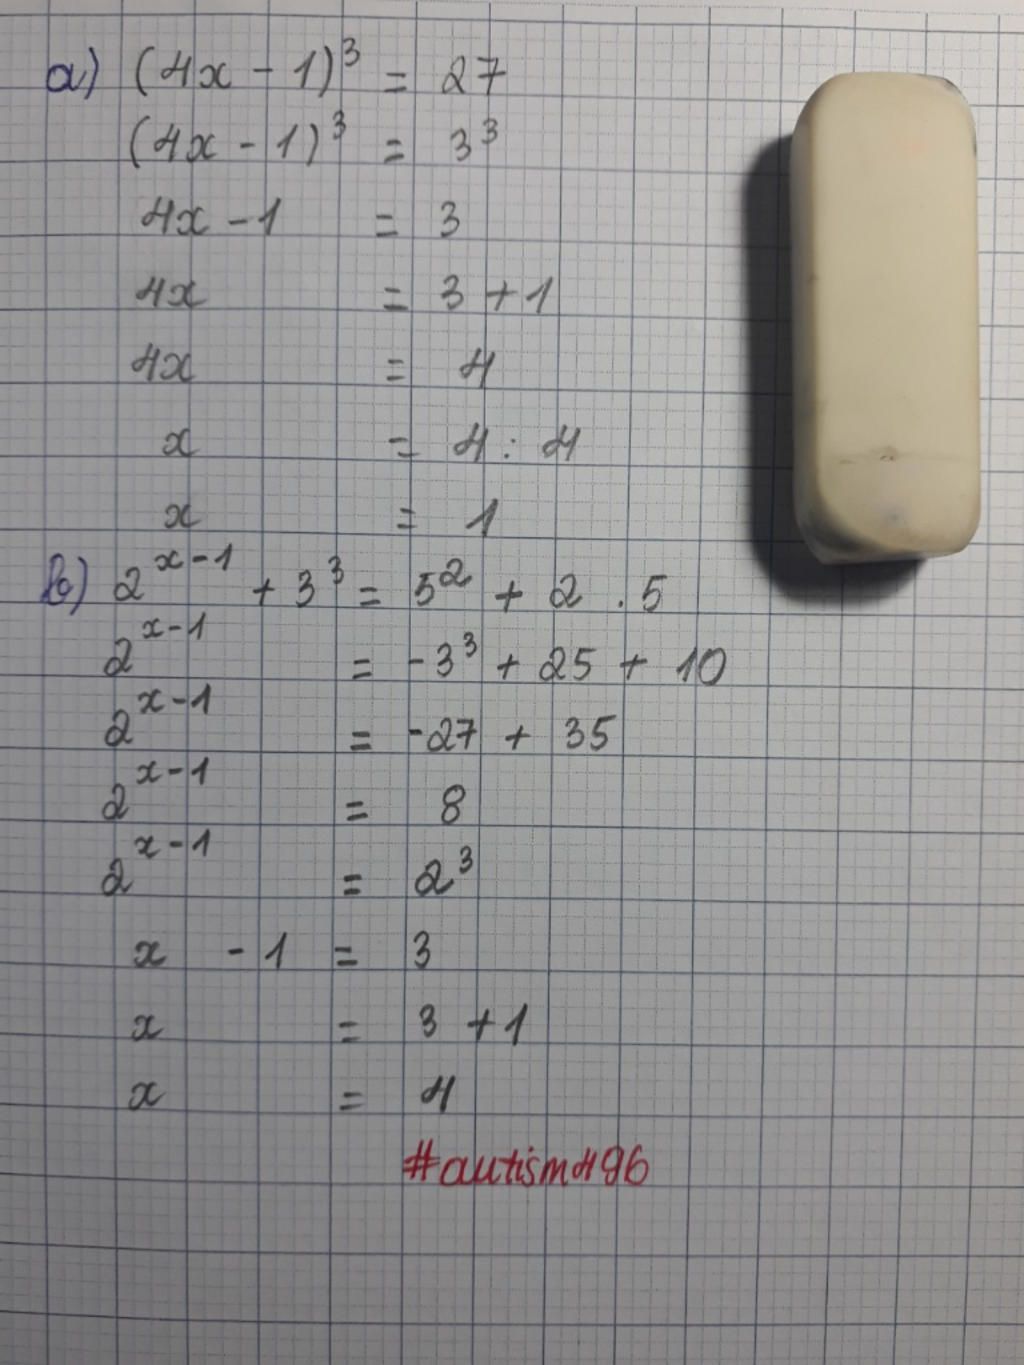 a) (4x - 1)³ = 27
(4x - 1)³ = 3³
4x - 1 = 3
4x = 3 + 1
4x = 4
x = 4 : 4
x = 1
b) 2ˣ⁻¹ + 3³ = 5² + 2 . 5
2ˣ⁻¹ = -3³ + 25 + 10
2ˣ⁻¹ = -27 + 35
2ˣ⁻¹ = 8
2ˣ⁻¹ = 2³
x - 1 = 3
x = 3 + 1
x = 4
#autism496